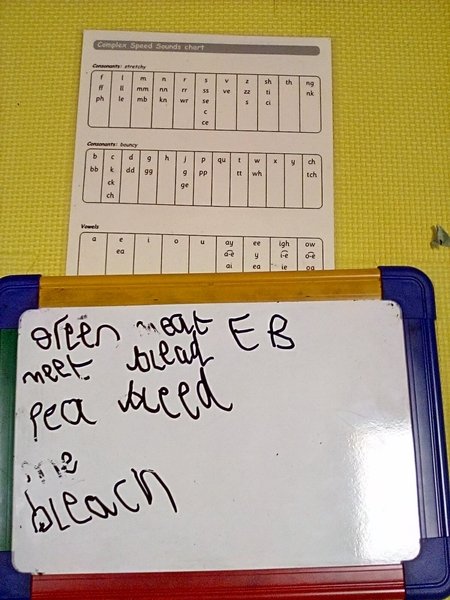 Complex Speed Sounds chart
Consonants: stretchy
f l m n r s v z sh th ng
ff ll mm nn rr ss ve zz ti nk
ph le mb kn wr se s ci
c
ce
Consonants: bouncy
b c d g h j p qu t w x y ch
bb k dd gg g pp tt wh tch
ck ge
ch
Vowels
a e i o u ay ee igh ow
ea a-e y i-e o-e
ai ea ie oa
green meat E B
meet bleed
pea bleed
me
bleach